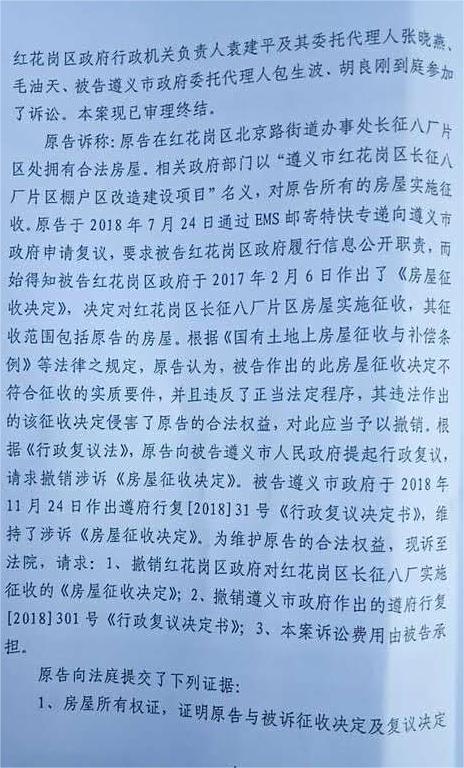 红花岗区政府行政机关负责人袁建平及其委托代理人张晓燕、
毛油天、被告遵义市政府委托代理人包生波、胡良刚到庭参加
了诉讼。本案现已审理终结。
原告诉称:原告在红花岗区北京路街道办事处长征八厂片
区处拥有合法房屋。相关政府部门以“遵义市红花岗区长征八
厂片区棚户区改造建设项目”名义,对原告所有的房屋实施征
收。原告于2018年7月24日通过EMS邮寄特快专递向遵义市
政府申请复议,要求被告红花岗区政府履行信息公开职责,而
始得知被告红花岗区政府于2017年2月6日作出了《房屋征
收决定》,决定对红花岗区长征八厂片区房屋实施征收,其征
收范围包括原告的房屋。根据《国有土地上房屋征收与补偿条
例》等法律之规定,原告认为,被告作出的此房屋征收决定不
符合征收的实质要件,并且违反了正当法定程序,其违法作出
的该征收决定侵害了原告的合法权益,对此应当予以撤销。根
据《行政复议法》,原告向被告遵义市人民政府提起行政复议,
请求撤销涉诉《房屋征收决定》。被告遵义市政府于2018年
11月24日作出遵府行复[2018]31号《行政复议决定书》,维
持了涉诉《房屋征收决定》。为维护原告的合法权益,现诉至
法院,请求:1、撤销红花岗区政府对红花岗区长征八厂实施
征收的《房屋征收决定》;2、撤销遵义市政府作出的遵府行复
[2018]301号《行政复议决定书》;3、本案诉讼费用由被告承
担。
原告向法庭提交了下列证据:
1、房屋所有权证,证明原告与被诉征收决定及复议决定